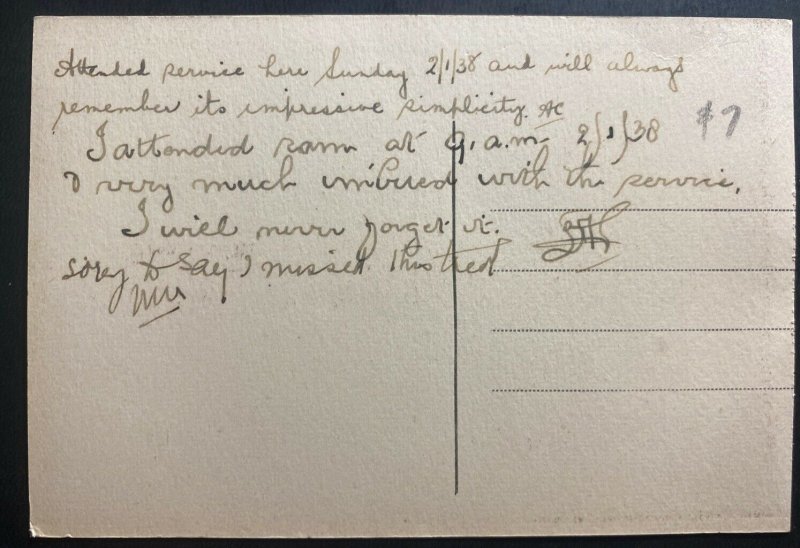 Attended service here Sunday 2/1/38 and will always
remember its impressive simplicity. AC
I attended same at 9. a.m. 2/1/38 $7
& very much imbued with the service.
I will never forget it.
sorry to say I missed this treat